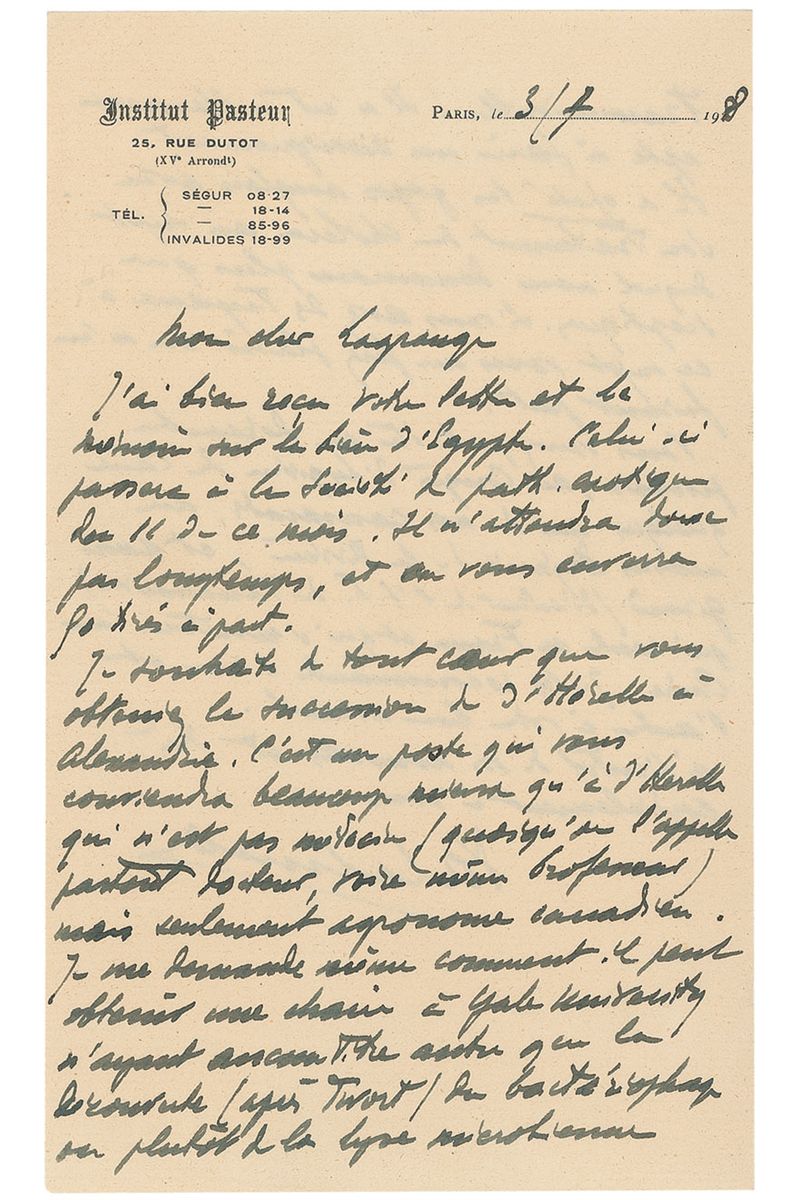 Institut Pasteur
25, RUE DUTOT
(XVe Arrondt)
TÉL. SÉGUR 08-27
— 18-14
— 85-96
INVALIDES 18-99
PARIS, le 3/7 1928
Mon cher Lagrange
J'ai bien reçu votre lettre et le
mémoire sur le d'Egypte. Celui-ci
passera à la Société de path. exotique
du 11 de ce mois. Il n'attendra donc
pas longtemps, et on vous enverra
50 tirés à part.
Je souhaite de tout cœur que vous
obteniez la succession de d'Hérelle à
Alexandrie. C'est un poste qui vous
conviendra beaucoup mieux qu'à d'Herelle
qui n'est pas médecin (quoiqu'on l'appelle
partout docteur, voire même professeur)
mais seulement agronome canadien.
Je me demande même comment il peut
obtenir une chaire à Yale University
n'ayant aucun titre autre que la
découverte (après Twort) du bactériophage
ou plutôt de la lyse microbienne